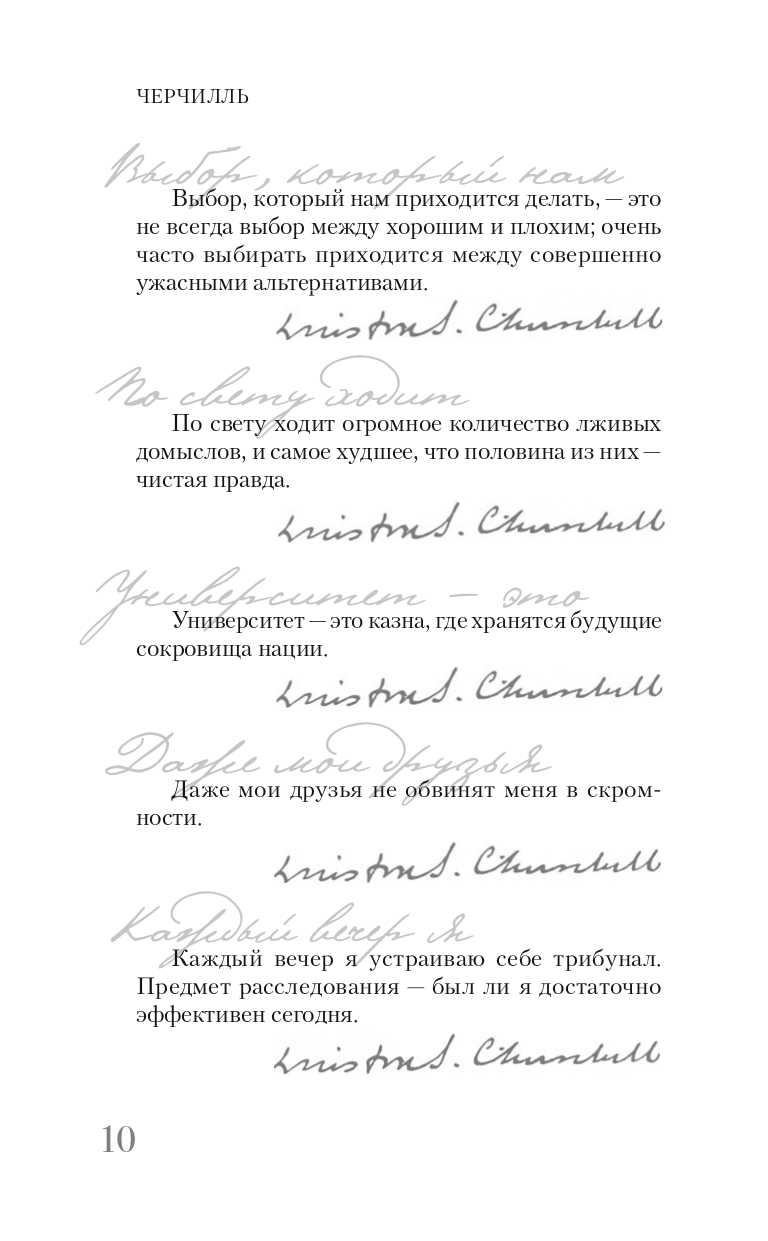 ЧЕРЧИЛЛЬ
Выбор, который нам
Выбор, который нам приходится делать, — это
не всегда выбор между хорошим и плохим; очень
часто выбирать приходится между совершенно
ужасными альтернативами.
Winston S. Churchill
По свету ходит
По свету ходит огромное количество лживых
домыслов, и самое худшее, что половина из них —
чистая правда.
Winston S. Churchill
Университет — это
Университет — это казна, где хранятся будущие
сокровища нации.
Winston S. Churchill
Даже мои друзья
Даже мои друзья не обвинят меня в скром-
ности.
Winston S. Churchill
Каждый вечер я
Каждый вечер я устраиваю себе трибунал.
Предмет расследования — был ли я достаточно
эффективен сегодня.
Winston S. Churchill
10